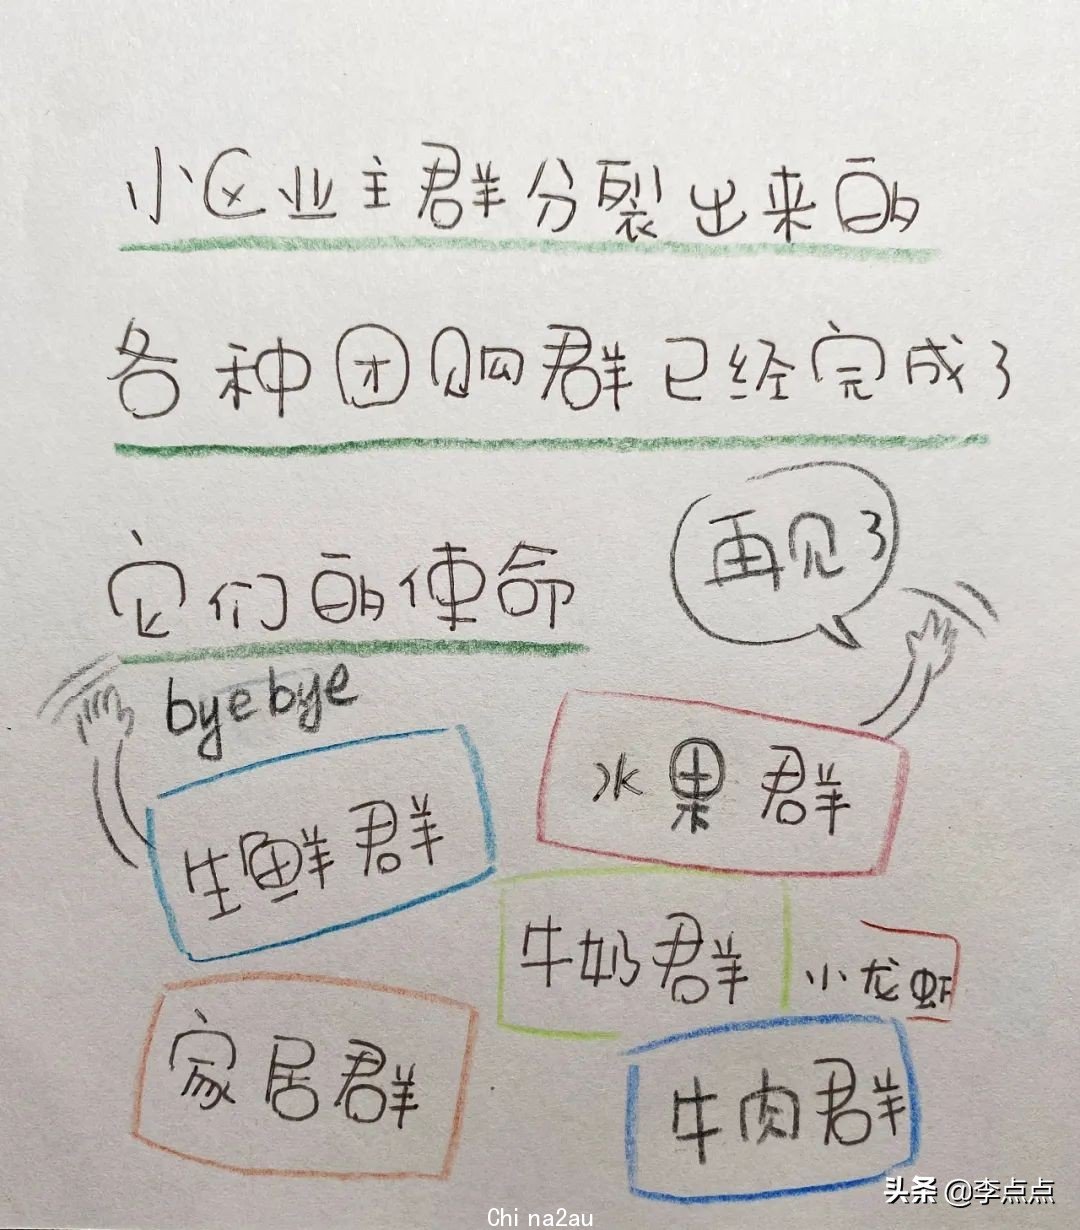 小区业主群分裂出来的
各种团购群已经完成了
它们的使命
再见了
byebye
水果群
生鲜群
牛奶群
小龙虾
家居群
牛肉群
头条 @李点点
Chi na2au